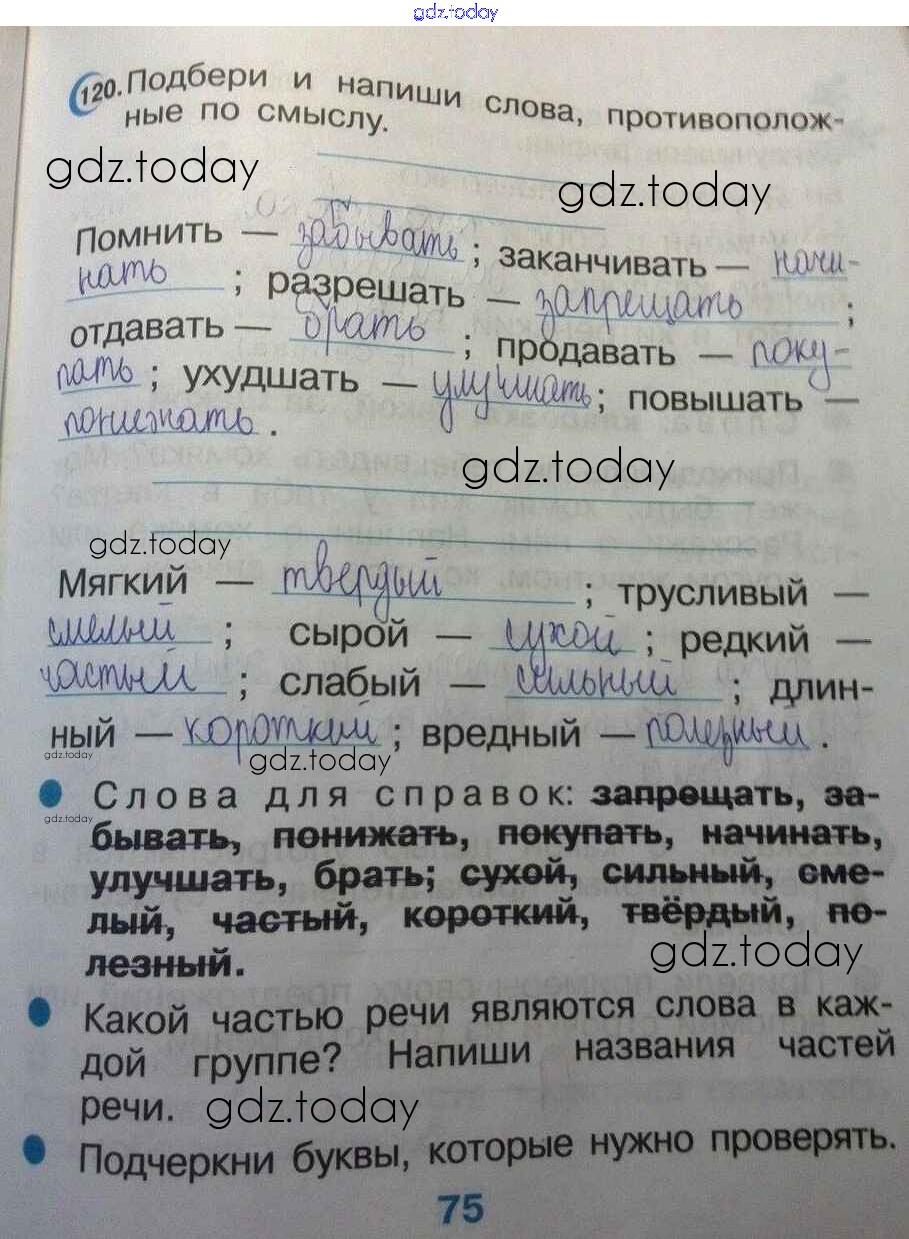 gdz.today
120. Подбери и напиши слова, противополож-
ные по смыслу.
gdz.today
gdz.today
Помнить — забывать ; заканчивать — начи-
нать ; разрешать — запрещать ;
отдавать — брать ; продавать — поку-
пать ; ухудшать — улучшать ; повышать —
понижать .
gdz.today
gdz.today
Мягкий — твердый ; трусливый —
смелый ; сырой — сухой ; редкий —
частый ; слабый — сильный ; длин-
ный — короткий ; вредный — полезный .
gdz.today
gdz.today
Слова для справок: запрещать, за-
gdz.today
бывать, понижать, покупать, начинать,
улучшать, брать; сухой, сильный, сме-
лый, частый, короткий, твёрдый, по-
лезный.
gdz.today
Какой частью речи являются слова в каж-
дой группе? Напиши названия частей
речи.
gdz.today
Подчеркни буквы, которые нужно проверять.
75